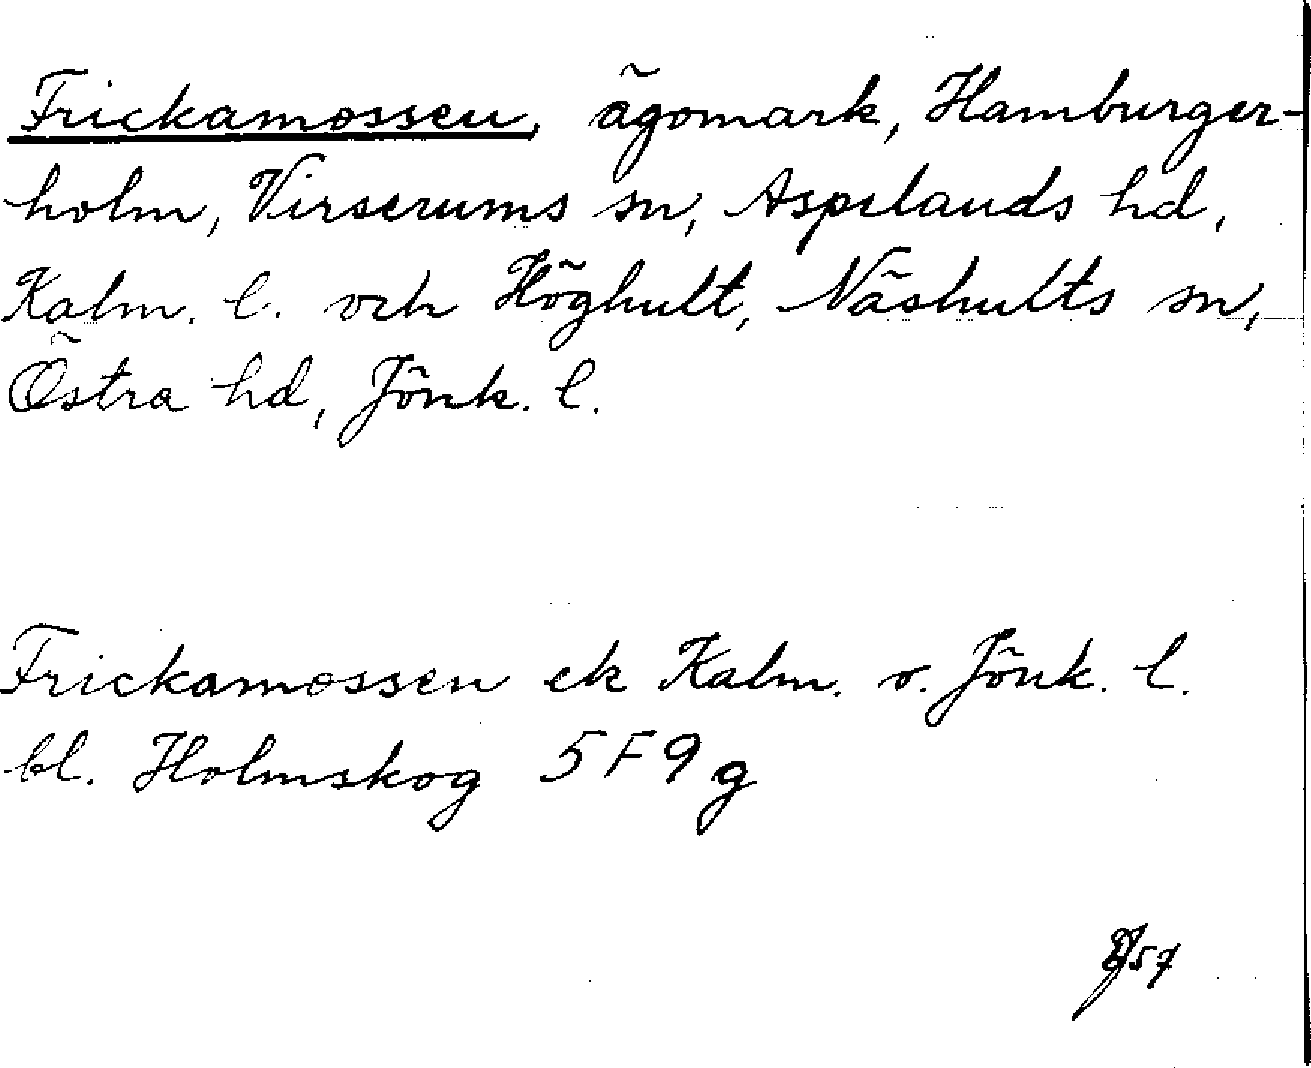 Frickamossen, ägomark, Hamburger-
holm, Virserums sn, Aspelands hd,
Kalm. l. och Höghult, Näshults sn,
Östra hd, Jönk. l.
Frickamossen ek Kalm. o. Jönk. l.
bl. Holmskog 5F9g
57